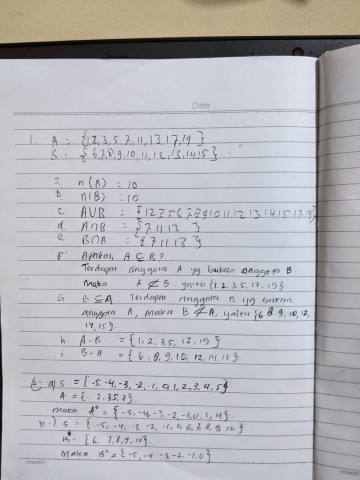 Date
1. A = {1,2,3,5,7,11,13,17,19}
S = {6,7,8,9,10,11,12,13,14,15}
a. n(A) = 10
b. n(B) = 10
c AUB = {1 2 3 5 6 7 8 9 10 11 12 13 14 15 17 19}
d. A∩B = {7 11 13}
e B∩A = {7 11 13}
F Apakah A ⊆ B?
Terdapat anggota A yg bukan anggota B.
Maka A ⊄ B yaitu {1,2,3,5,17,19}
G B ⊆ A Terdapat anggota B yg bukan
anggota A, maka B ⊄ A, yaitu {6,8,9,10,12,
14,15}.
h. A-B = {1,2,3,5,17,19}
i B-A = {6,8,9,10,12,14,15}.
2. a) S = {-5,-4,-3,-2,-1,0,1,2,3,4,5}
A = {2,3,5,7}
maka Aᶜ = {-5,-4,-3,-2,-1,0,1,4}
b.) S = {-5,-4,-3,-2,-1,0,6,7,8,9,10}
B = {6,7,8,9,10}
Maka Bᶜ = {-5,-4,-3,-2,-1,0}